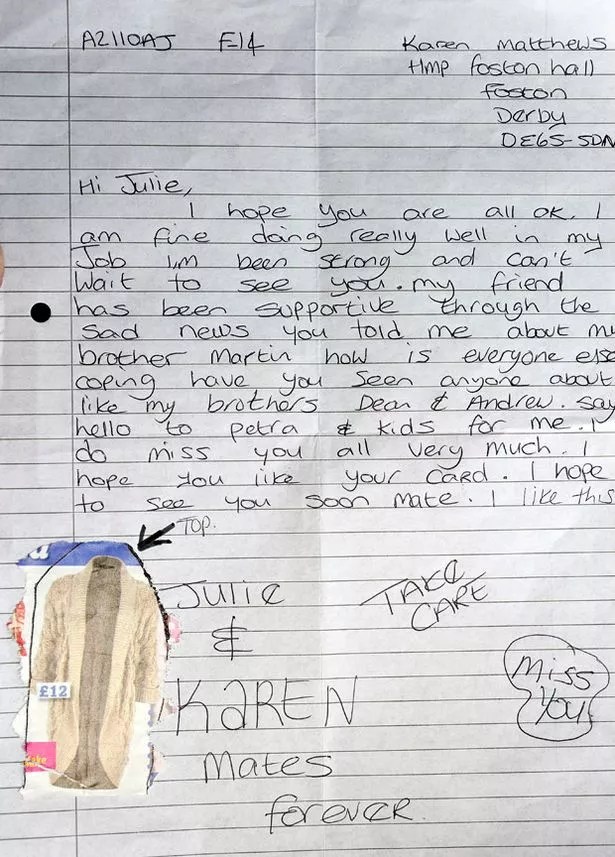 A2110AJ F-14
Karen Matthews
Hmp foston hall
foston
Derby
DE65-5DN
Hi Julie,
I hope you are all ok. I
am fine doing really well in my
Job i,m been strong and can't
wait to see you. my friend
has been supportive through the
sad news you told me about my
brother Martin how is everyone else
coping have you seen anyone about
like my brothers Dean & Andrew. say
hello to petra & kids for me. I
do miss you all very much. I
hope you like your card. I hope
to see you soon mate. I like this
TOP.
Julie
&
KAREN
mates
forever.
TAKE
CARE
Miss
You
£12